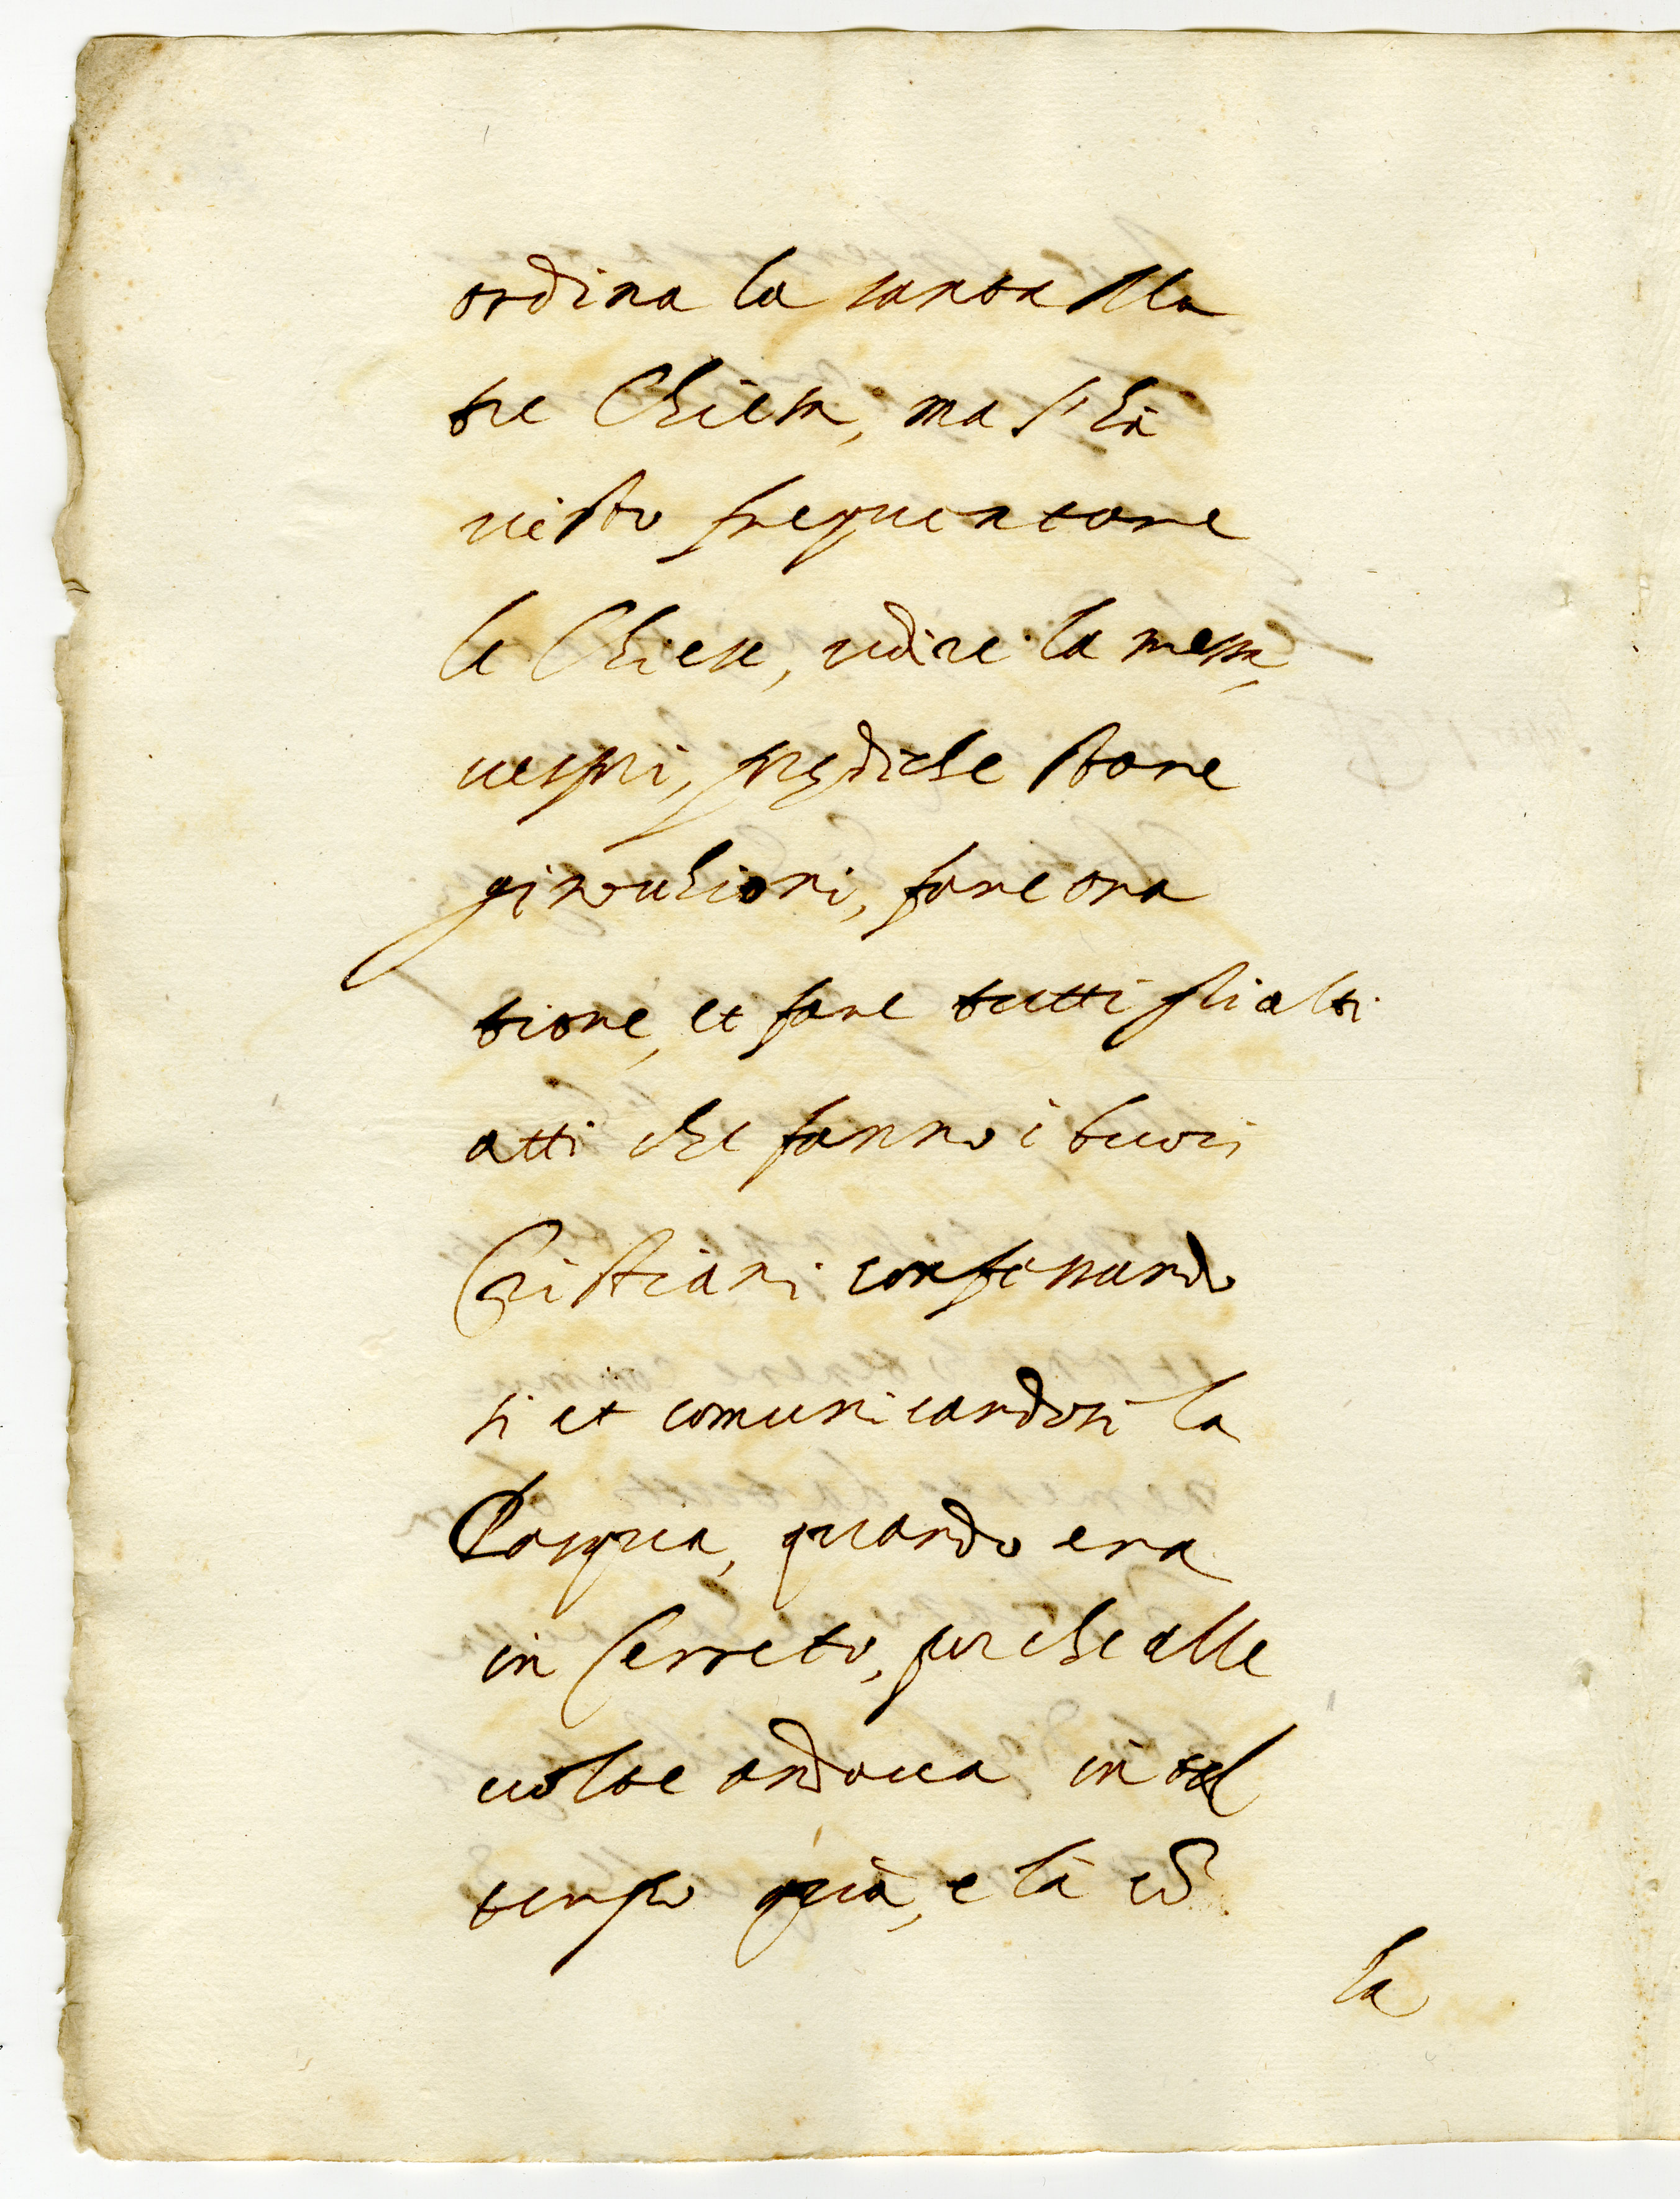 ordina la santa Ma
tre Chiesa, ma l'hà
visto frequentare
le Chiese, udire la messa,
vespri, prediche stare
ginochioni, fare ora
tione, et fare tutti gli altri
atti che fanno i buoni
Cristiani confessando
si et comunicandosi la
Pasqua, quando era
in Cerreto, perche alle
volte andava in tal
tempo quà, e là cõ
la